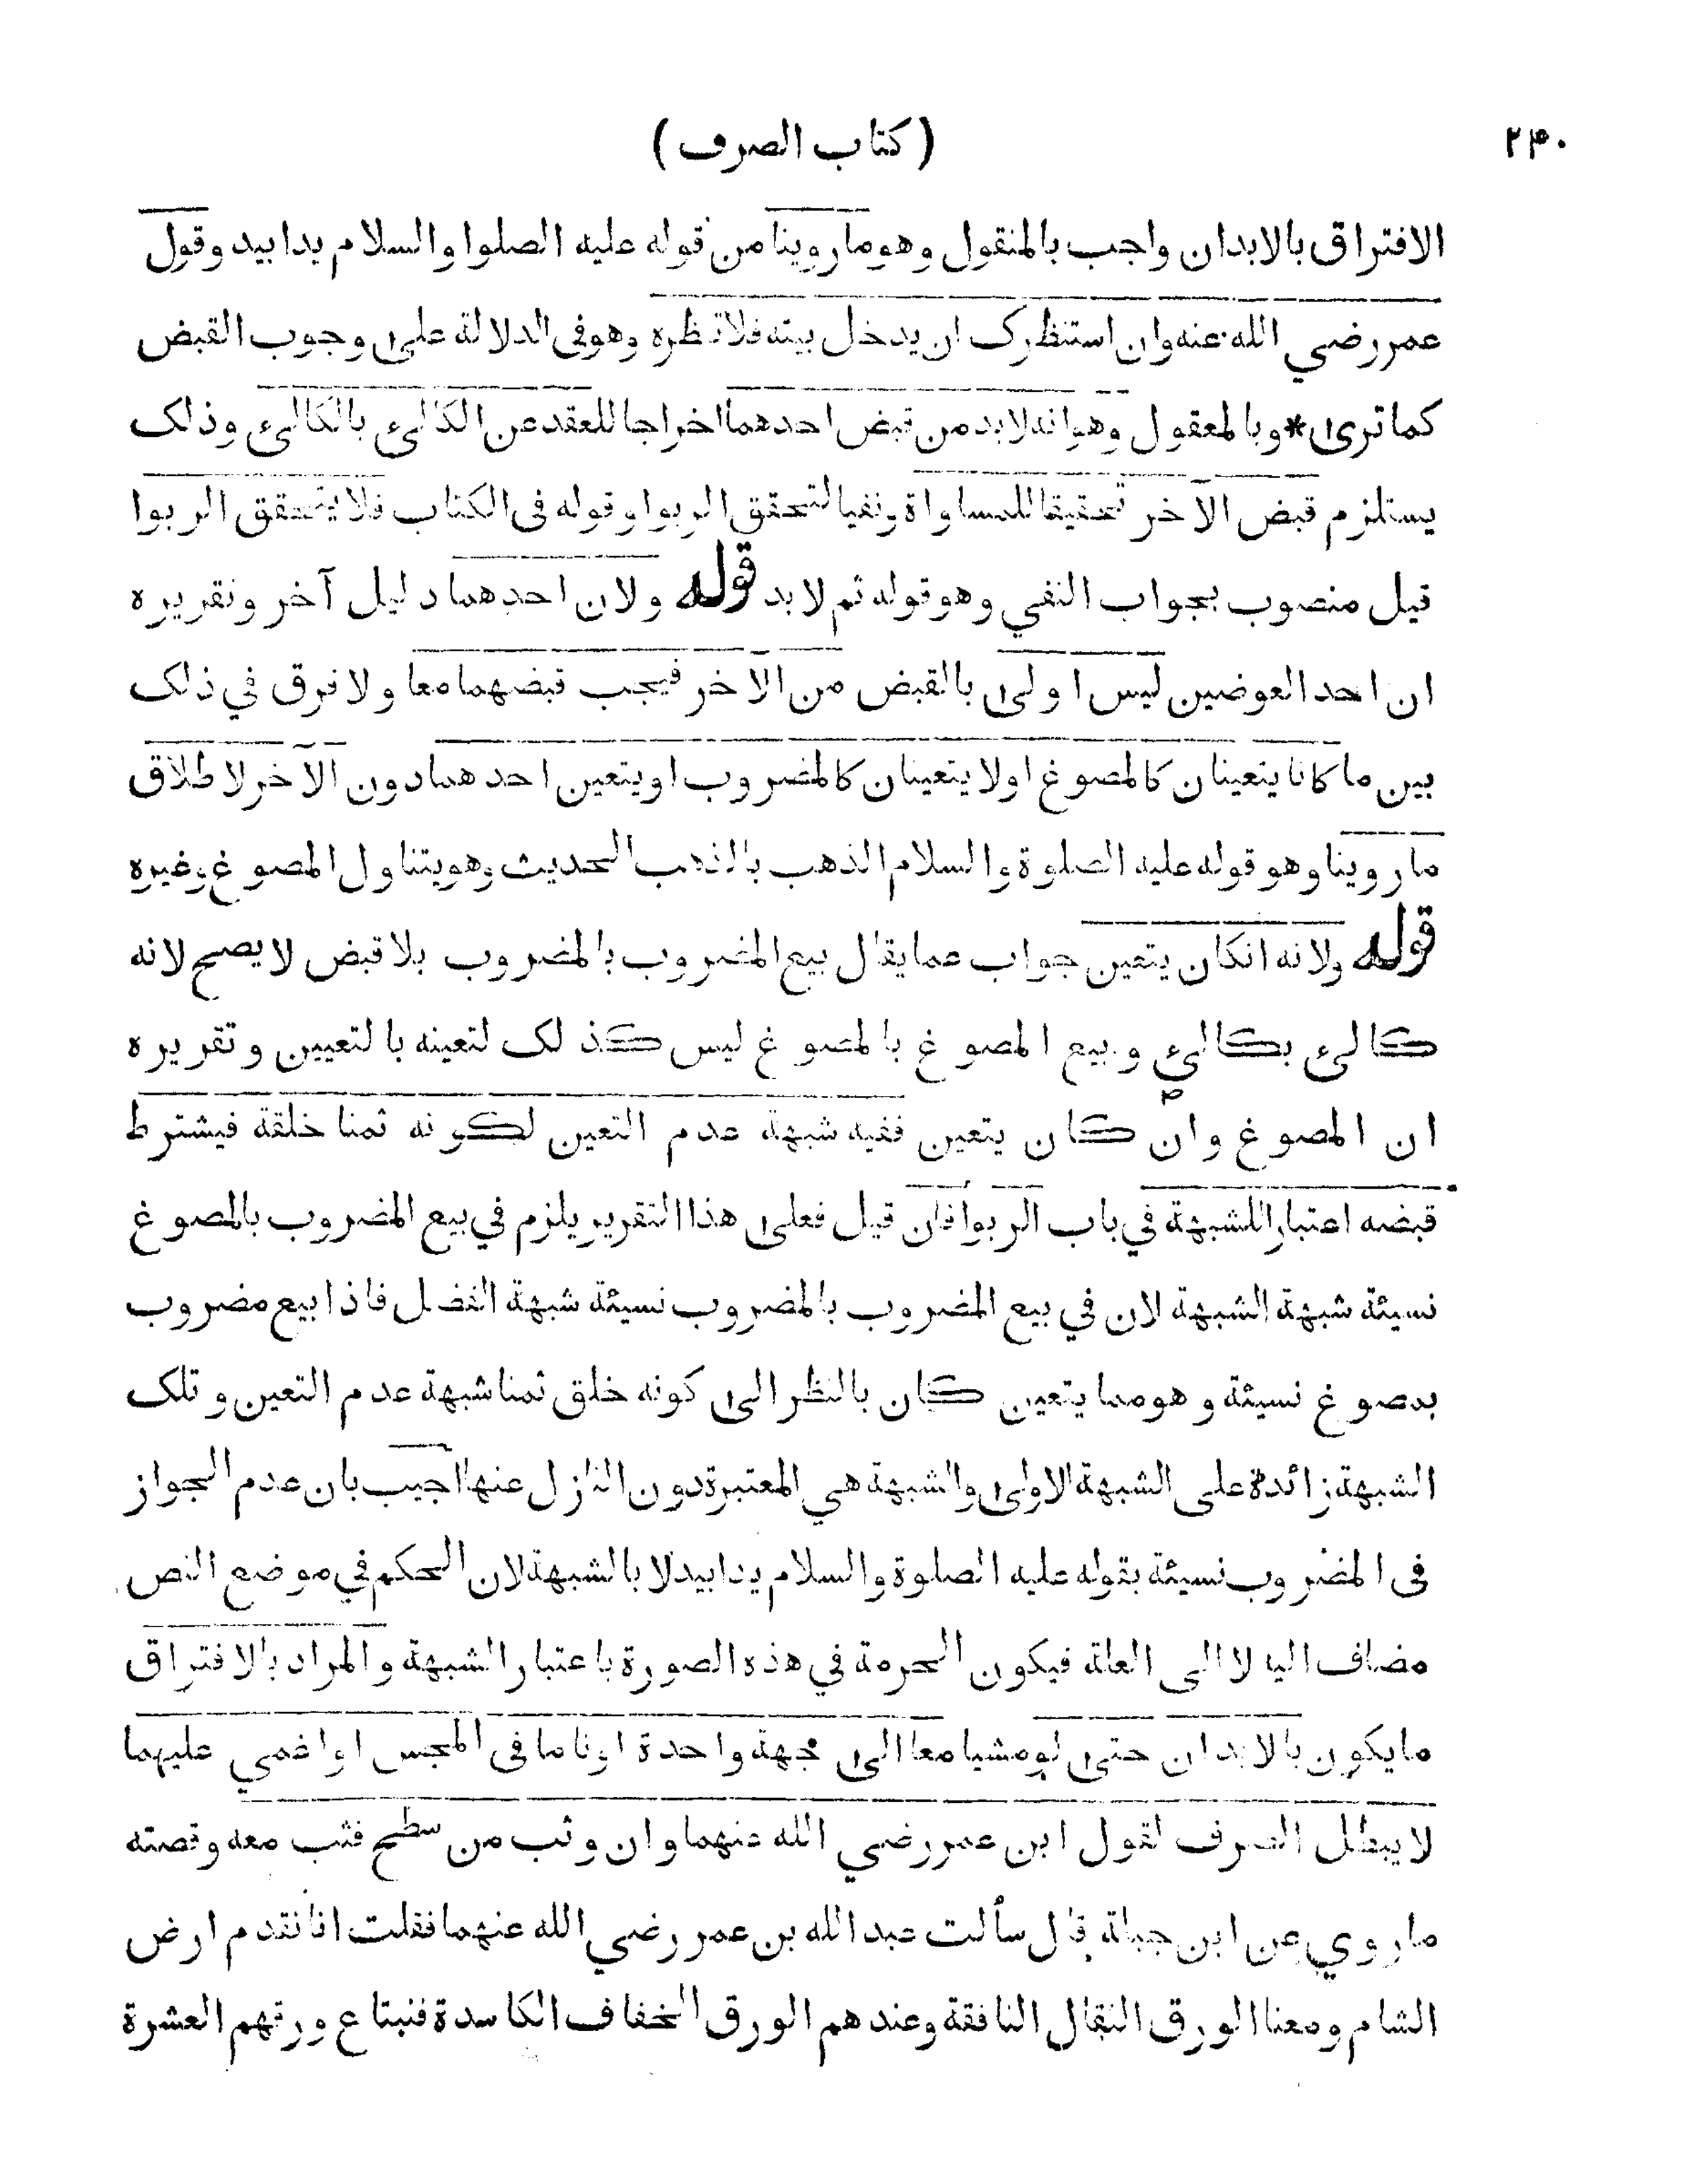 ۲۴۰
( كتاب الصرف )
الافتراق بالابدان واجب بالمنقول وهو ما روينا من قوله عليه الصلوا والسلام يدا بيد وقول
عمر رضي الله عنه وان استنظرك ان يدخل بيته فلا تنظره وهو فى الدلالة على وجوب القبض
كما ترى * وبالمعقول وهو انه لا بد من قبض احدهما اخراجا للعقد عن الكالئ بالكالئ وذلك
يستلزم قبض الآخر تحقيقا للمساواة ونفيا لتحقق الربوا وقوله فى الكتاب فلا يتحقق الربوا
قيل منصوب بجواب النفي وهو قوله ثم لا بد قوله ولان احدهما دليل آخر وتقريره
ان احد العوضين ليس اولى بالقبض من الآخر فيجب قبضهما معا ولا فرق في ذلك
بين ما كانا يتعينان كالمصوغ اولا يتعينان كالمضروب او يتعين احدهما دون الآخر لاطلاق
ما روينا وهو قوله عليه الصلوة والسلام الذهب بالذهب الحديث وهو يتناول المصوغ وغيره
قوله ولانه انكان يتعين جواب عما يقال بيع المضروب بالمضروب بلا قبض لا يصح لانه
كالئ بكالئ و بيع المصوغ بالمصوغ ليس كذلك لتعينه بالتعيين وتقريره
ان المصوغ وان كان يتعين ففيه شبهة عدم التعين لكونه ثمنا خلقة فيشترط
قبضه اعتبارا للشبهة في باب الربوا فان قيل فعلى هذا التقرير يلزم في بيع المضروب بالمصوغ
نسيئة شبهة الشبهة لان في بيع المضروب بالمضروب نسيئة شبهة الفضل فاذا بيع مضروب
بمصوغ نسيئة و هو مما يتعين كان بالنظر الى كونه خلق ثمنا شبهة عدم التعين وتلك
الشبهة زائدة على الشبهة الاولى والشبهة هي المعتبرة دون النازل عنها اجيب بان عدم الجواز
فى المضروب نسيئة بقوله عليه الصلوة والسلام يدا بيد لا بالشبهة لان الحكم في موضع النص
مضاف اليه لا الى العلة فيكون الحرمة في هذه الصورة باعتبار الشبهة والمراد بالافتراق
ما يكون بالابدان حتى لو مشيا معا الى جهة واحدة او ناما فى المجس او اغمي عليهما
لا يبطل الصرف لقول ابن عمر رضي الله عنهما وان وثب من سطح فثب معه وقصته
ما روي عن ابن جبلة قال سألت عبد الله بن عمر رضي الله عنهما فقلت انا نقدم ارض
الشام ومعنا الورق الثقال النافقة وعندهم الورق الخفاف الكاسدة فنبتاع ورقهم العشرة